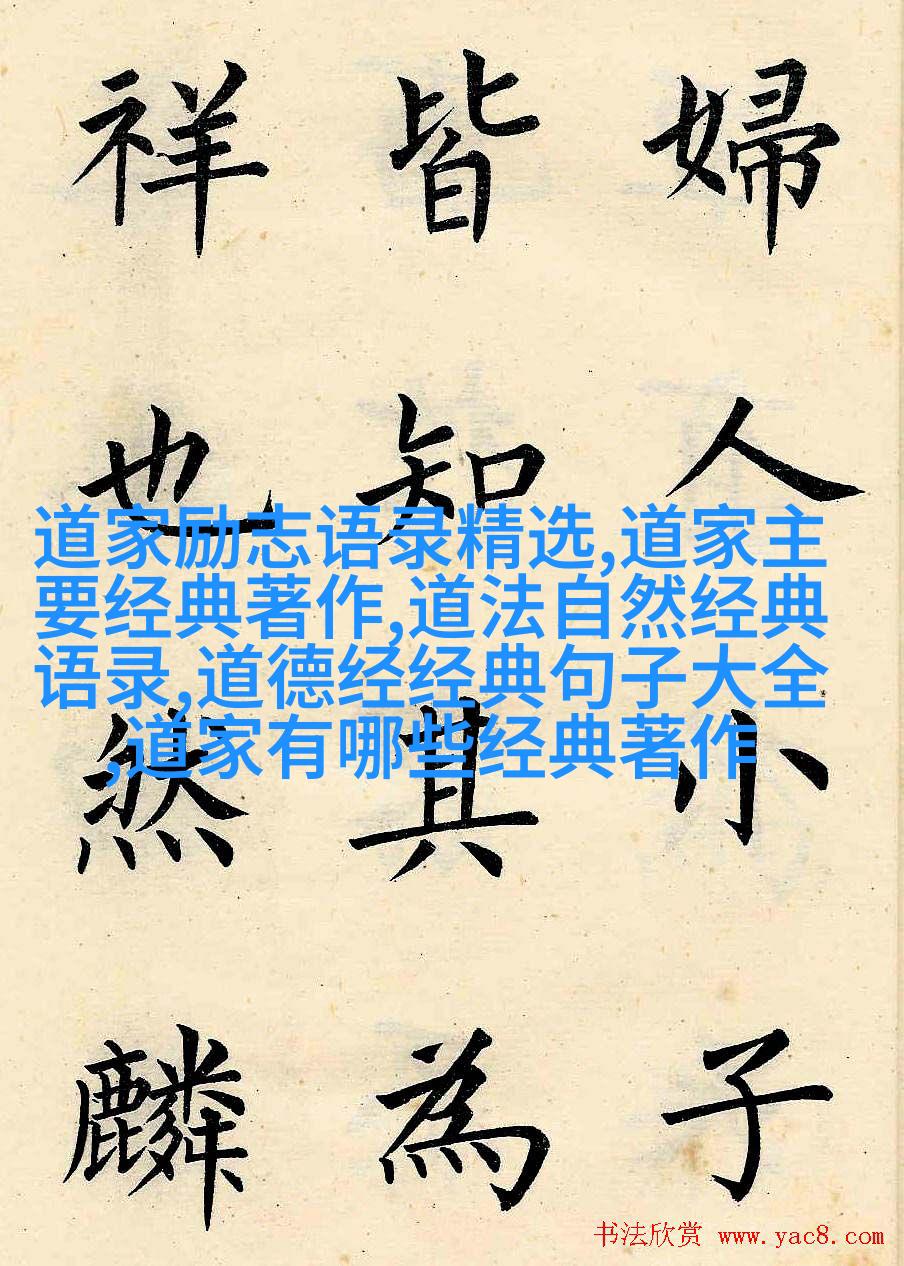 婦人小子
皆知其為
祥也然麟
道家励志语录精选,道家主
要经典著作,道法自然经典
语录,道德经经典句子大全
,道家有哪些经典著作
书法欣赏 www.yac8.com